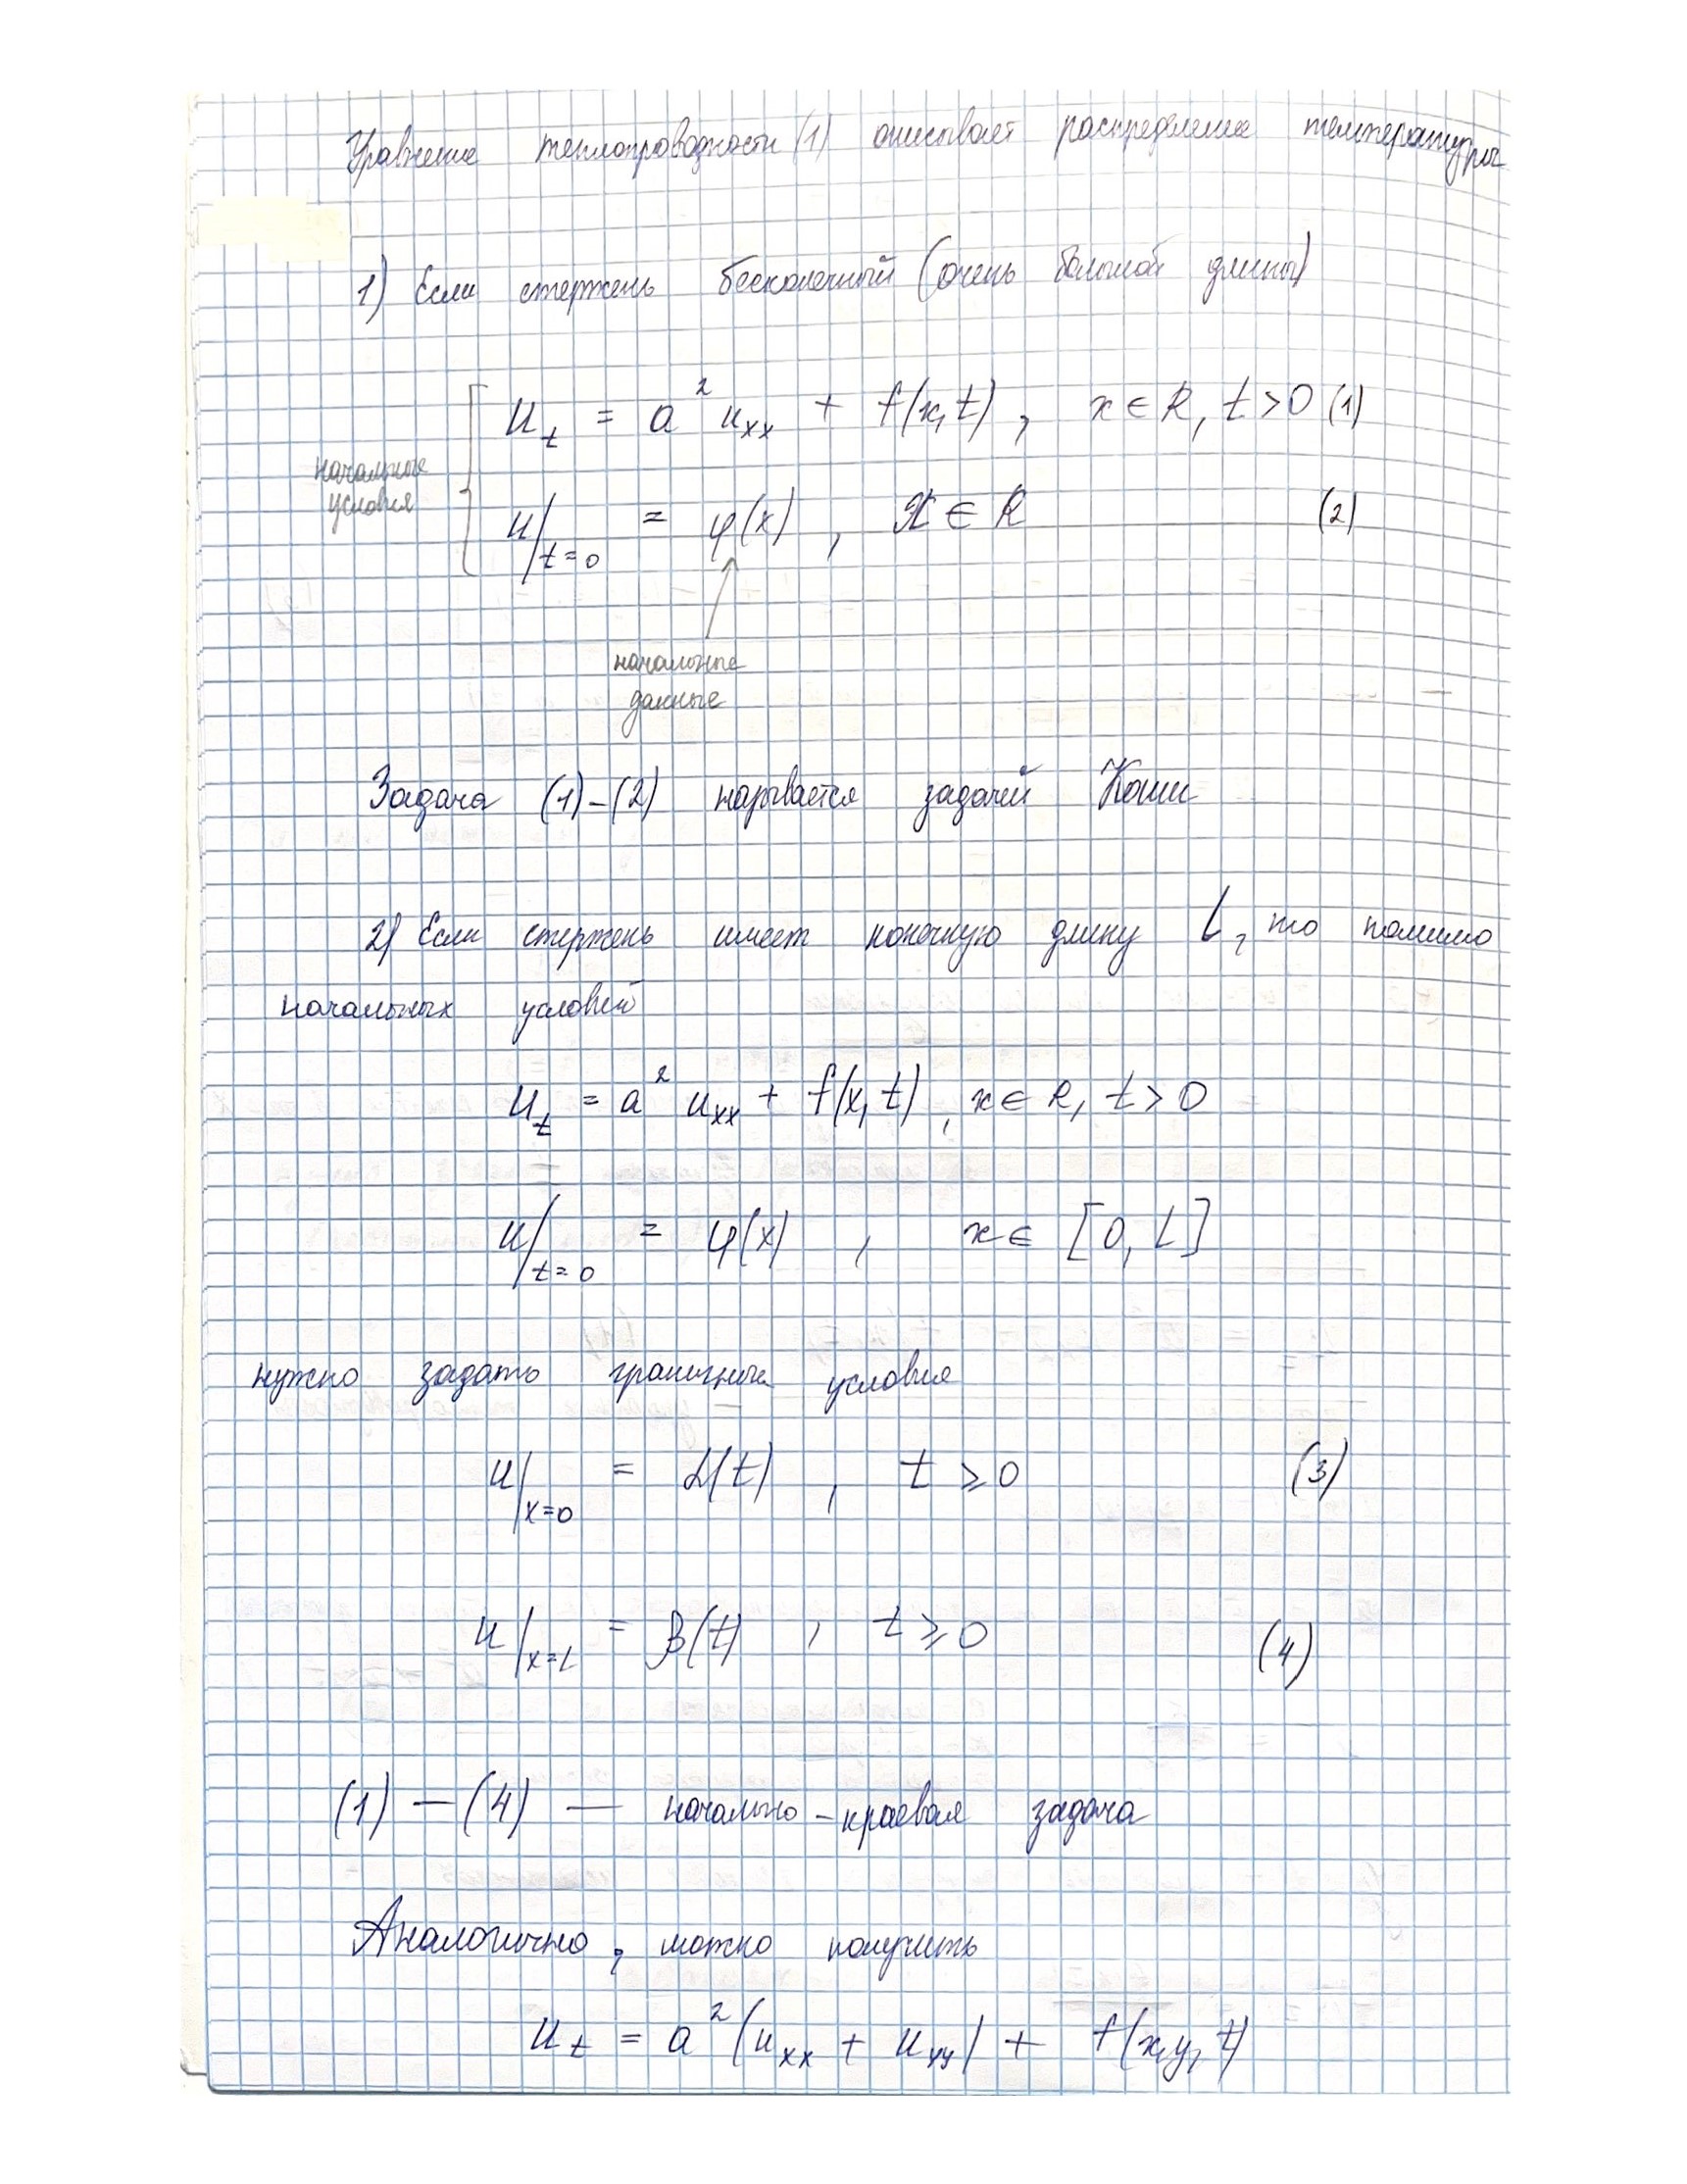 Уравнение теплопроводности (1) описывает распределение температуры
1) Если стержень бесконечный (очень большой длины)
u_t = a² u_xx + f(x,t) , x ∈ R, t > 0 (1)
начальные
условия
u|_t=0 = φ(x) , x ∈ R (2)
начальные
данные
Задача (1)-(2) называется задачей Коши
2) Если стержень имеет конечную длину L, то помимо
начальных условий
u_t = a² u_xx + f(x,t) , x ∈ R, t > 0
u|_t=0 = φ(x) , x ∈ [0, L]
нужно задать граничные условия
u|_x=0 = α(t) , t ⩾ 0 (3)
u|_x=L = β(t) , t ⩾ 0 (4)
(1) — (4) — начально - краевая задача
Аналогично, можно получить
u_t = a² (u_xx + u_yy) + f(x,y,t)